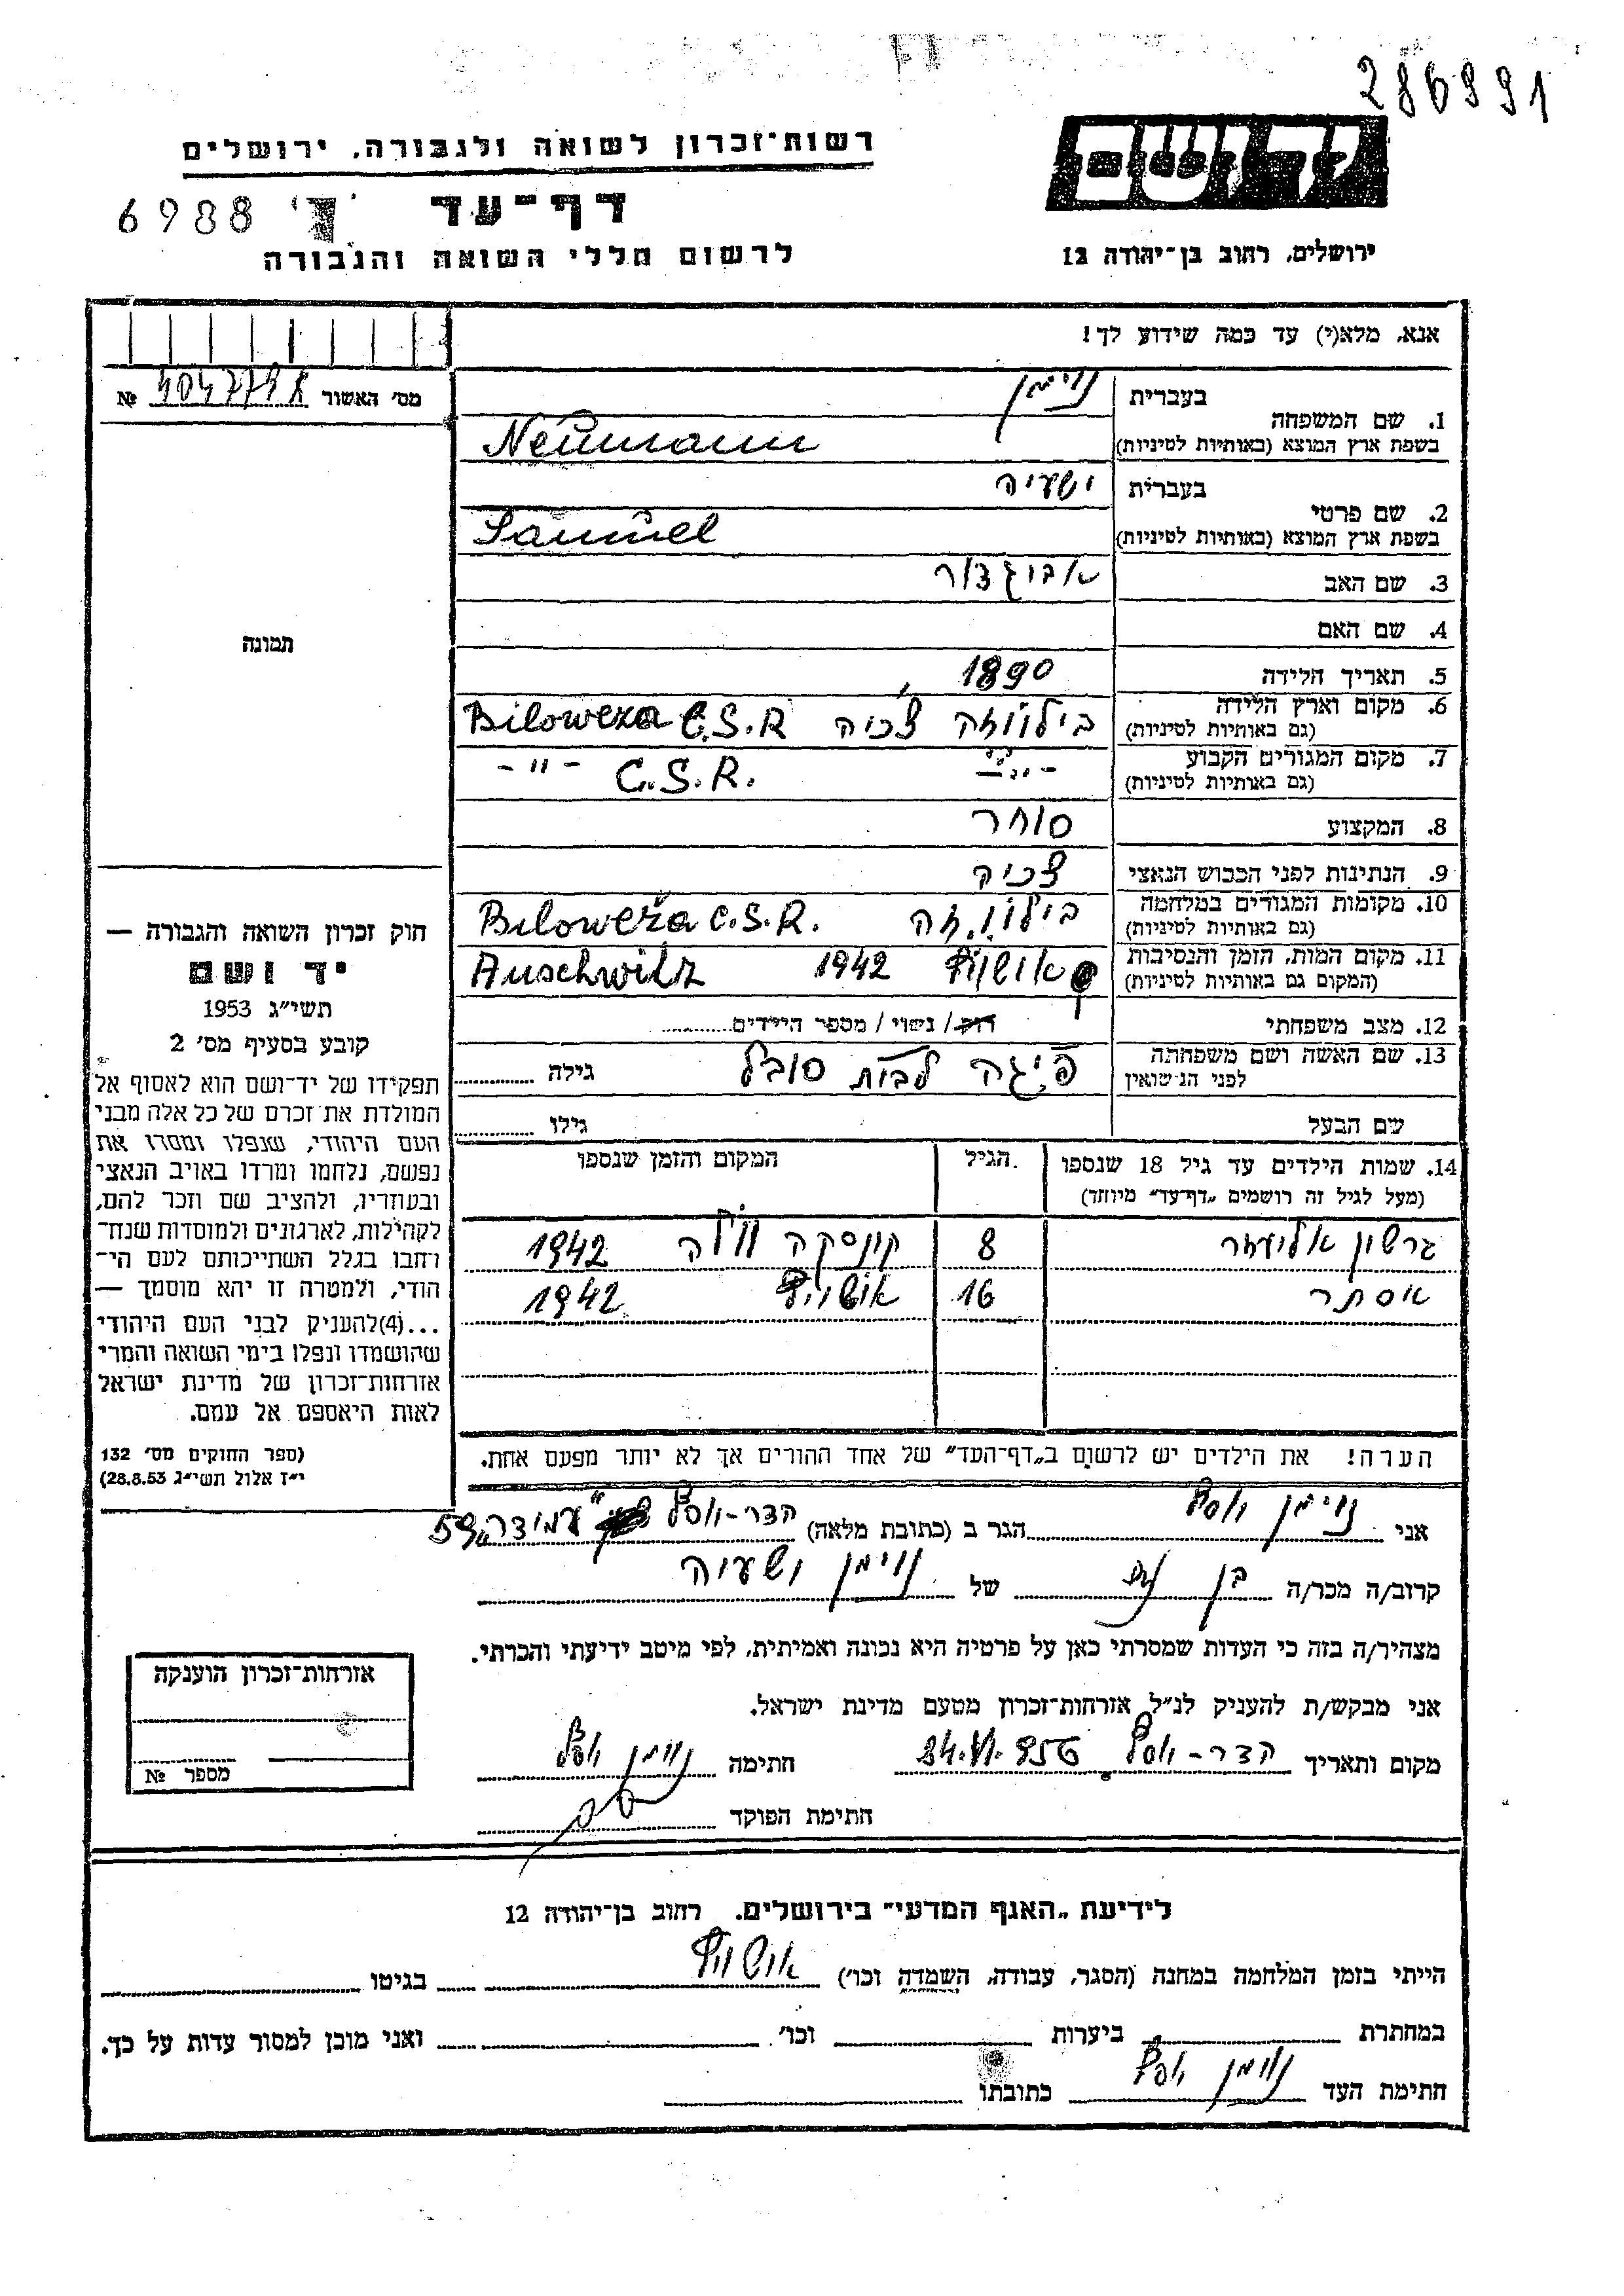 286991
יד ושם
רשות־זכרון לשואה ולגבורה, ירושלים
דף־עד
6988
לרשום חללי השואה והגבורה
ירושלים, רחוב בן־יהודה 12
אנא, מלא(י) עד כמה שידוע לך!
מס׳ האשור №
1. שם המשפחה
בעברית נוימן
בשפת ארץ המוצא (באותיות לטיניות) Neumann
2. שם פרטי
בעברית ישעיה
בשפת ארץ המוצא (באותיות לטיניות) Samuel
3. שם האב אביגדור
4. שם האם
5. תאריך הלידה 1890
6. מקום וארץ הלידה (גם באותיות לטיניות) בילווזה צ׳כיה Biloweza C.S.R
7. מקום המגורים הקבוע (גם באותיות לטיניות) -״- C.S.R. -״-
8. המקצוע סוחר
9. הנתינות לפני הכבוש הנאצי צ׳כיה
10. מקומות המגורים במלחמה (גם באותיות לטיניות) בילווזה Biloweža C.S.R.
11. מקום המות, הזמן והנסיבות (המקום גם באותיות לטיניות) אושויץ 1942 Auschwitz
12. מצב משפחתי רוק/ נשוי / מספר הילדים
13. שם האשה ושם משפחתה לפני הנישואין פיגה לבית סובל גילה
שם הבעל גילו
14. שמות הילדים עד גיל 18 שנספו (מעל לגיל זה רושמים „דף־עד״ מיוחד) הגיל המקום והזמן שנספו
גרשון אליעזר 8 קונסקה וולה 1942
אסתר 16 אושויץ 1942
הערה! את הילדים יש לרשום ב„דף־העד״ של אחד ההורים אך לא יותר מפעם אחת.
תמונה
חוק זכרון השואה והגבורה —
יד ושם
תשי״ג 1953
קובע בסעיף מס׳ 2
תפקידו של יד־ושם הוא לאסוף אל
המולדת את זכרם של כל אלה מבני
העם היהודי, שנפלו ומסרו את
נפשם, נלחמו ומרדו באויב הנאצי
ובעוזריו, ולהציב שם וזכר להם,
לקהילות, לארגונים ולמוסדות שנח־
רחבו בגלל השתייכותם לעם הי־
הודי, ולמטרה זו יהא מוסמך —
...(4)להעניק לבני העם היהודי
שהושמדו ונפלו בימי השואה והמרי
אזרחות־זכרון של מדינת ישראל
לאות היאספם אל עמם.
(ספר החוקים מס׳ 132
י״ז אלול תשי״ג 28.8.53)
אני נוימן יוסף הגר ב (כתובת מלאה) הדר-יוסף עמידר 59
קרוב/ה מכר/ה בן של נוימן ישעיה
מצהיר/ה בזה כי העדות שמסרתי כאן על פרטיה היא נכונה ואמיתית, לפי מיטב ידיעתי והכרתי.
אני מבקש/ת להעניק לנ״ל אזרחות־זכרון מטעם מדינת ישראל.
מקום ותאריך הדר-יוסף חתימה נוימן יוסף
חתימת הפוקד
אזרחות־זכרון הוענקה
מספר №
לידיעת „האגף המדעי״ בירושלים. רחוב בן־יהודה 12
הייתי בזמן המלחמה במחנה (הסגר, עבודה, השמדה וכו׳) אושויץ בגיטו
במחתרת ביערות וכו׳ ואני מוכן למסור עדות על כך.
חתימת העד נוימן יוסף כתובתו